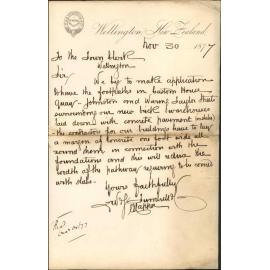 Wellington, New Zealand,
Nov 30 1877
To the Town Clerk
Wellington
Sir
We beg to make application
to have the footpaths in Custom House
Quay - Johnston and Waring Taylor Sts
surrounding our new Stores (warehouses)
laid down with concrete pavement (asphalte)
the contractor for our buildings have to lay
a margin of concrete one foot wide all
round them in connection with the
foundations and this will reduce the
width of the pathway requiring to be covered
with slabs.
Yours faithfully
W & G Turnbull & Co